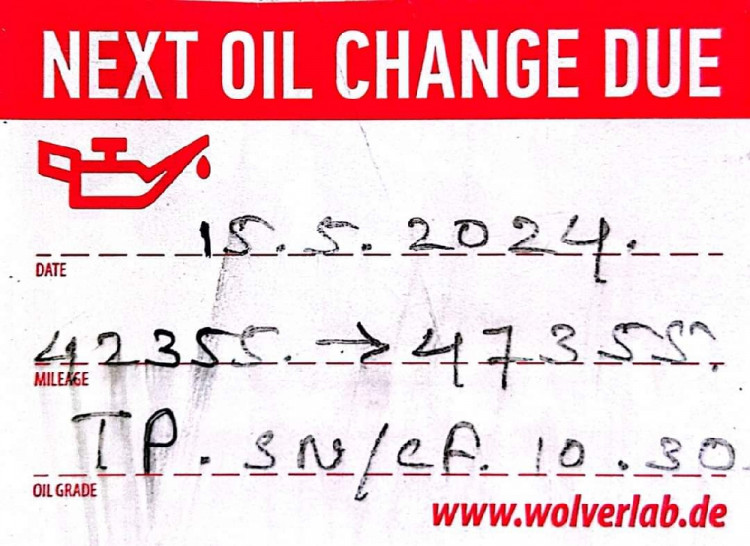 NEXT OIL CHANGE DUE
15.5.2024.
DATE
42355. → 47355.
MILEAGE
TP. SN/CF. 10.30.
OIL GRADE
www.wolverlab.de